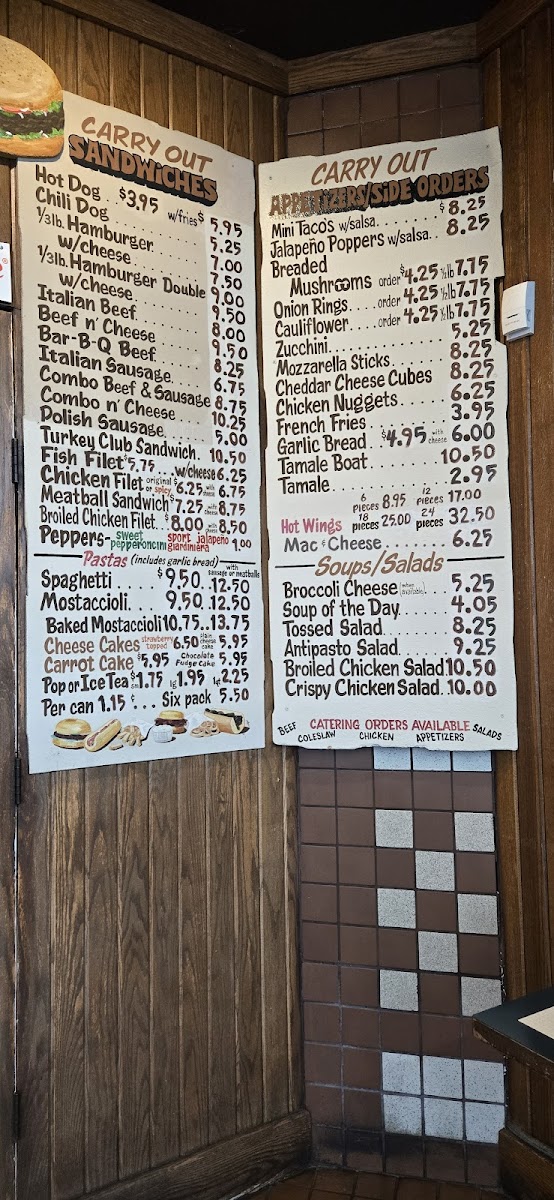 CARRY OUT
SANDWICHES
Hot Dog . . $3.95 w/fries $ 5.95
Chili Dog 5.25
1/3 lb. Hamburger 7.00
w/cheese 7.50
1/3 lb. Hamburger Double 9.00
w/cheese 9.50
Italian Beef 8.00
Beef n' Cheese 9.50
Bar-B-Q Beef 8.25
Italian Sausage 6.75
Combo Beef & Sausage 8.75
Combo n' Cheese 10.25
Polish Sausage 5.00
Turkey Club Sandwich 10.50
Fish Filet $5.75 ... w/cheese 6.25
Chicken Filet original or spicy $6.25 with cheese 6.75
Meatball Sandwich $7.25 with cheese 8.75
Broiled Chicken Filet. $8.00 with cheese 8.50
Peppers- sweet pepperoncini sport jalapeño giardiniera 1.00
Pastas (includes garlic bread) with sausage or meatballs
Spaghetti $9.50 12.50
Mostaccioli 9.50 12.50
Baked Mostaccioli 10.75..13.75
Cheese Cakes strawberry topped 6.50 plain cheese cake 5.95
Carrot Cake $5.95 Chocolate Fudge Cake 5.95
Pop or Ice Tea sm $1.75 lg 1.95 1qt 2.25
Per can 1.15 ¢ . . . Six pack 5.50
CARRY OUT
APPETIZERS/SIDE ORDERS
Mini Tacos w/salsa $8.25
Jalapeño Poppers w/salsa 8.25
Breaded
Mushrooms order $4.25 ½ lb 7.75
Onion Rings order 4.25 ½ lb 7.75
Cauliflower order 4.25 ½ lb 7.75
Zucchini 5.25
Mozzarella Sticks 8.25
Cheddar Cheese Cubes 8.25
Chicken Nuggets 6.25
French Fries 3.95
Garlic Bread $4.95 with cheese 6.00
Tamale Boat 10.50
Tamale 2.95
6 pieces 8.95 12 pieces 17.00
Hot Wings 18 pieces 25.00 24 pieces 32.50
Mac & Cheese 6.25
Soups/Salads
Broccoli Cheese (when available) 5.25
Soup of the Day 4.05
Tossed Salad 8.25
Antipasto Salad 9.25
Broiled Chicken Salad 10.50
Crispy Chicken Salad 10.00
BEEF CATERING ORDERS AVAILABLE SALADS
COLESLAW CHICKEN APPETIZERS